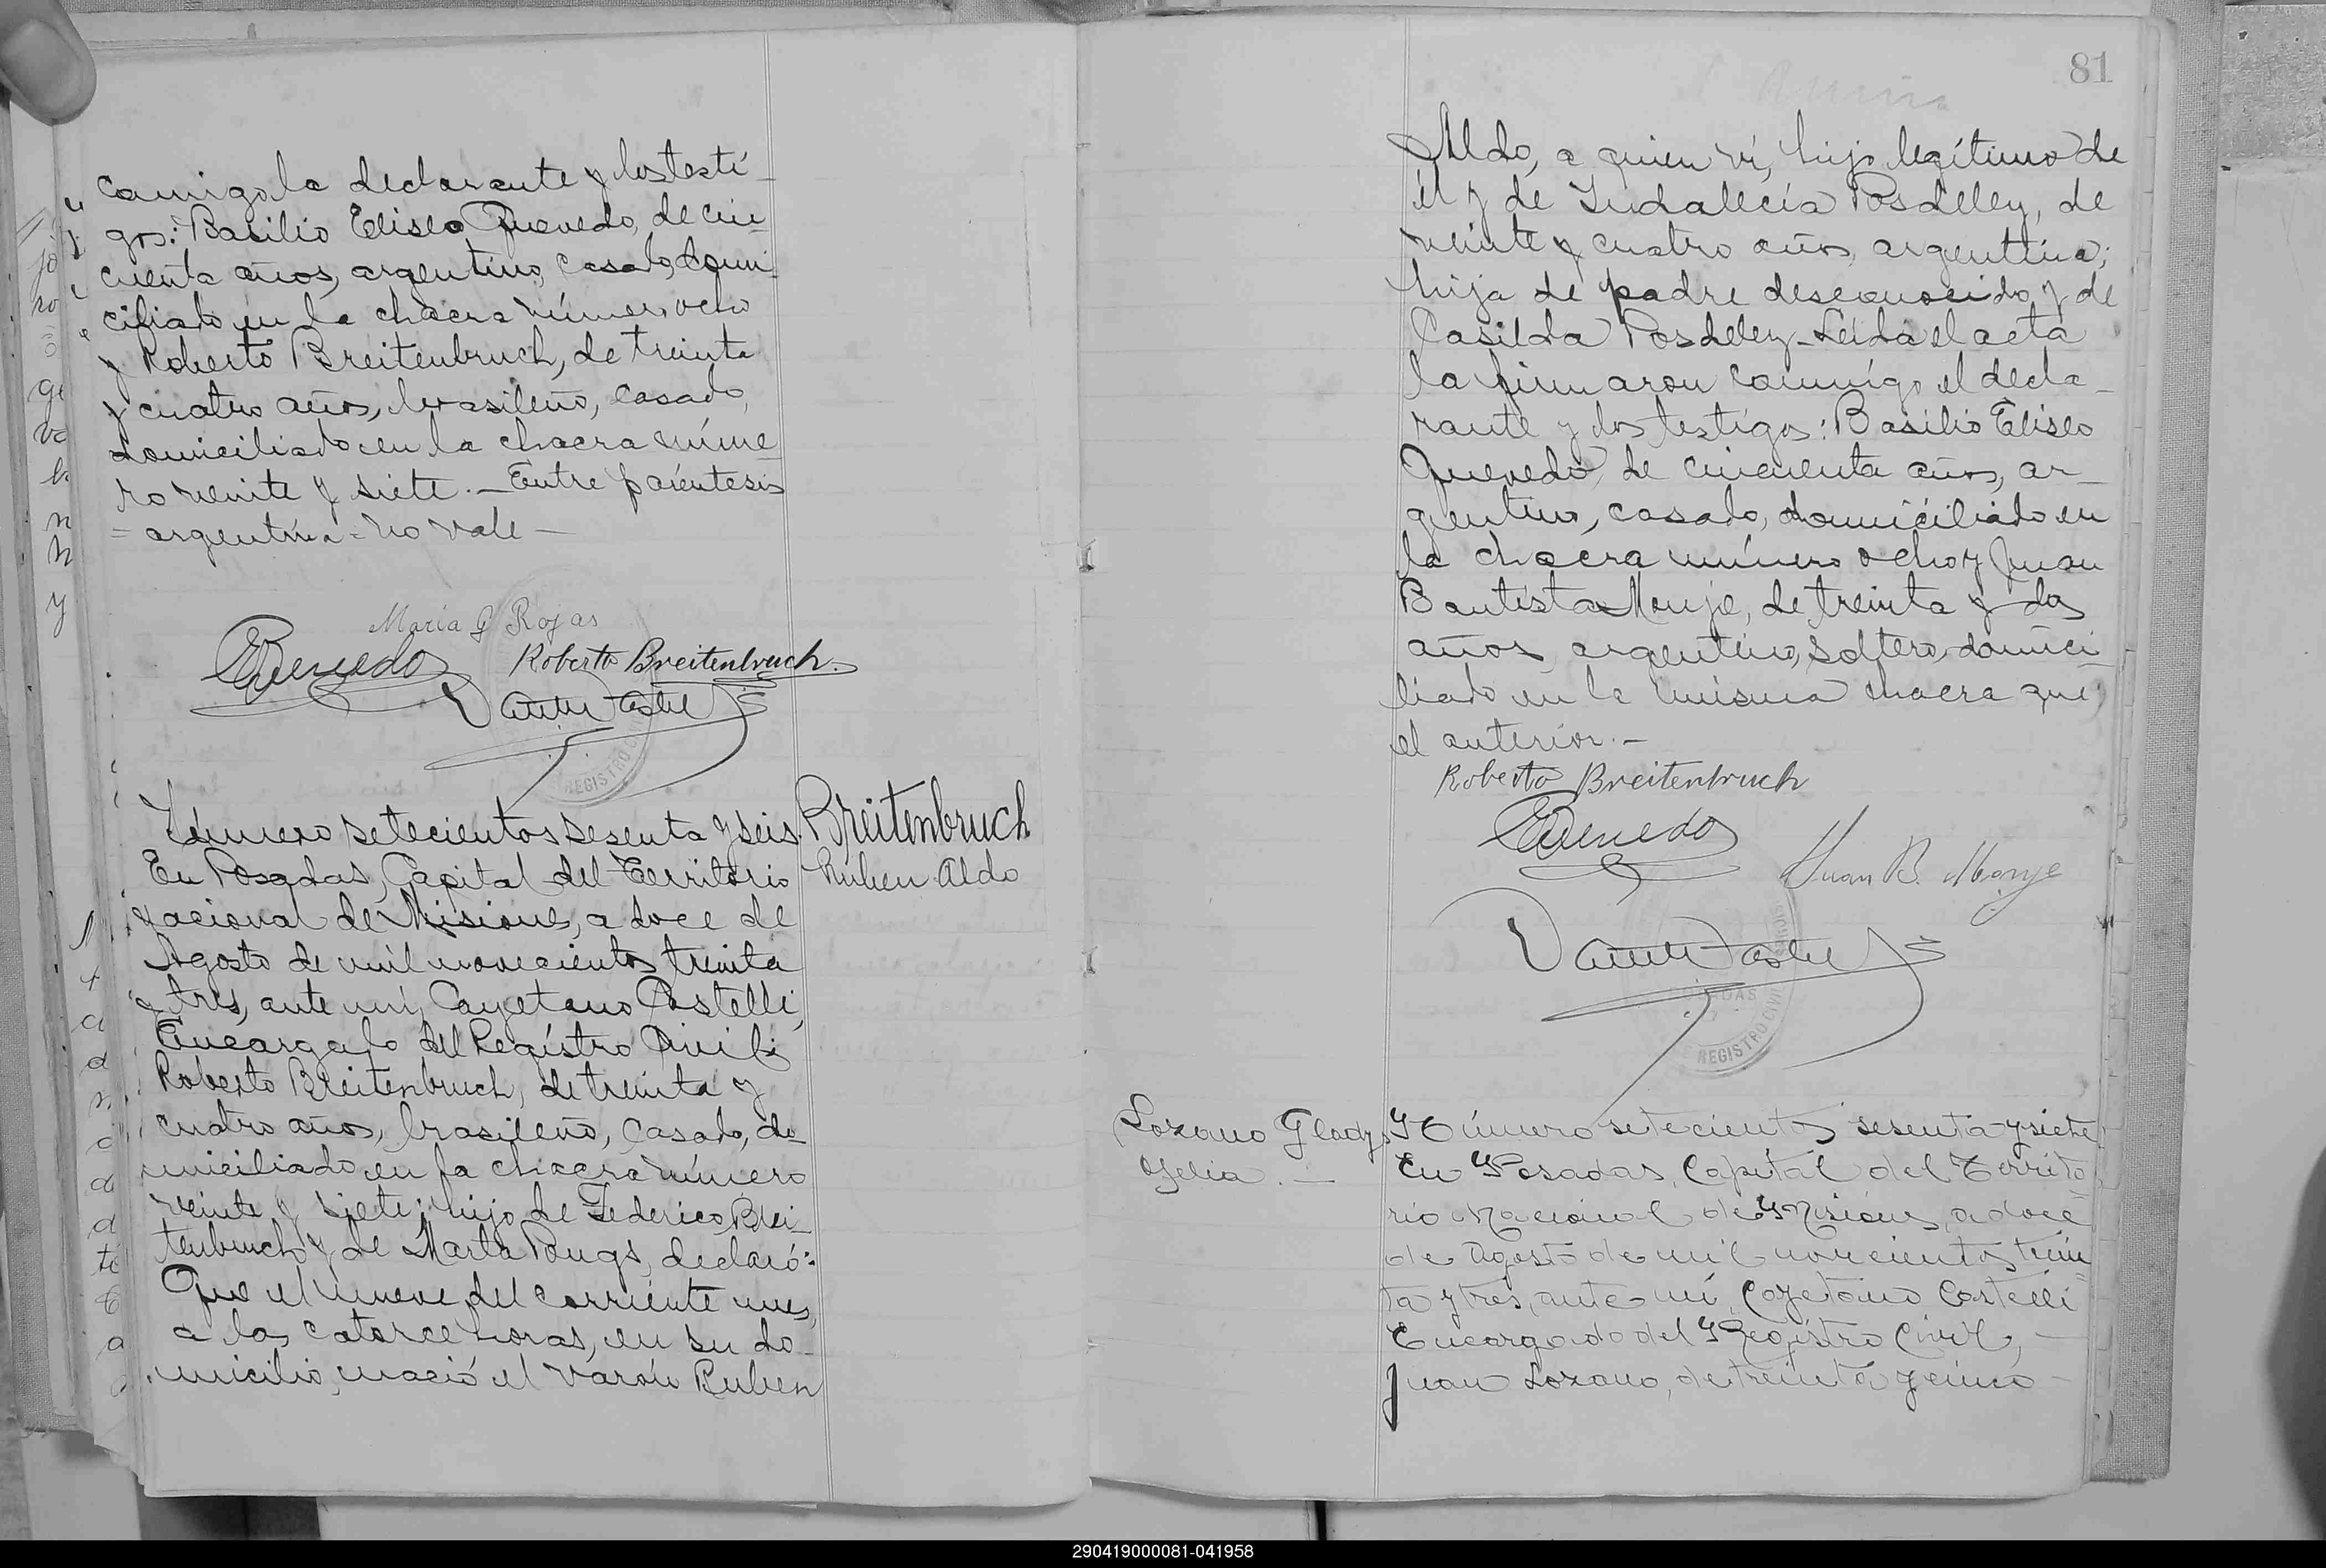 comigo la declarante y los testi-
gos: Basilio Eliseo Quevedo, de cin-
cuenta años, argentino, casado, domi-
ciliado en la chacra número ocho
y Roberto Breitenbruch, de treinta
y cuatro años, brasileño, casado,
domiciliado en la chacra núme-
ro veinte y siete.- Entre paréntesis
= argentina = no vale -
María G Rojas
EQuevedo
Roberto Breitenbruch.
REGISTRO
Número setecientos sesenta y seis
Breitenbruch
Ruben Aldo
En Posadas, Capital del Territorio
Nacional de Misiones, a doce de
Agosto de mil novecientos treinta
y tres, ante mí, Cayetano Castelli,
Encargado del Registro Civil;
Roberto Breitenbruch, de treinta y
cuatro años, brasileño, casado, do-
miciliado en la chacra número
veinte y siete; hijo de Federico Brei-
tenbruch y de Marta Pougs, declaró:
Que el nueve del corriente mes,
a las catorce horas, en su do-
micilio, nació el varón Ruben
81
Aldo, a quien ví, hijo legítimo de
él y de Indalecia Posdeley, de
veinte y cuatro años, argentina;
hija de padre desconocido y de
Casilda Posdeley.- Leída el acta
la firmaron conmigo el decla-
rante y los testigos: Basilio Eliseo
Quevedo, de cincuenta años, ar-
gentino, casado, domiciliado en
la chacra número ocho y Juan
Bautista Monje, de treinta y dos
años, argentino, soltero, domici-
liado en la misma chacra que
el anterior.-
Roberto Breitenbruch
EQuevedo
Juan B. Monje
POSADAS
REGISTRO CIVIL
Lozano Gladys
Número setecientos sesenta y siete
En Posadas, Capital del Territo-
rio Nacional de Misiones, a doce
de Agosto de mil novecientos trein-
ta y tres, ante mí, Cayetano Castelli
Encargado del Registro Civil,
Juan Lozano, de treinta y cinco
290419000081-041958